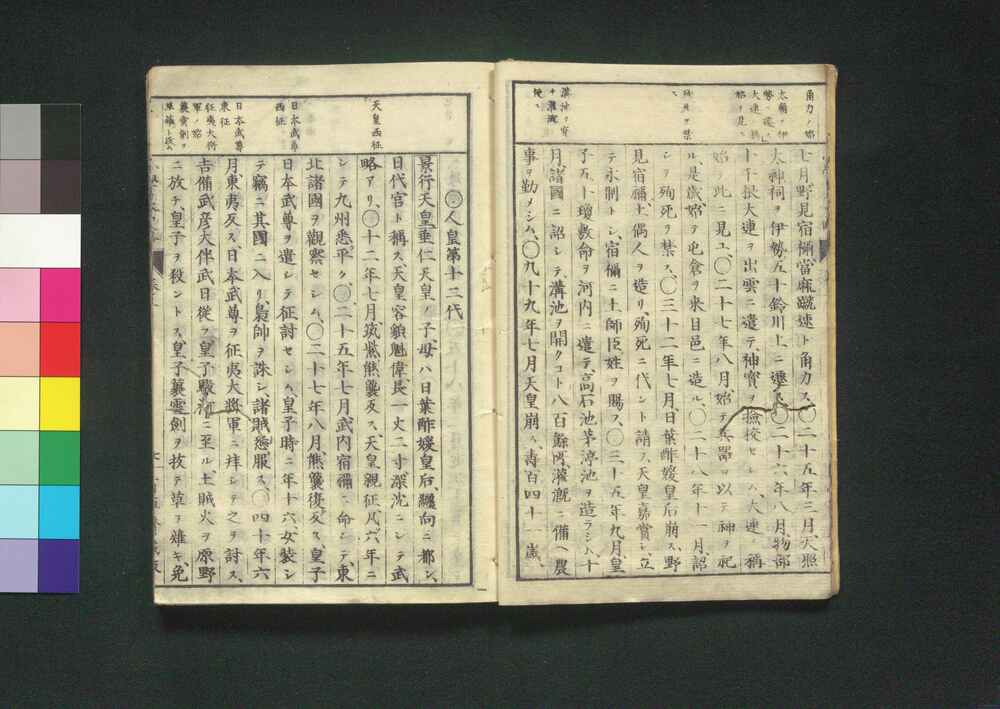 角力ノ始
太廟ヲ伊
勢ニ遷ス
大連ノ稱
始メ見ユ
殉死ヲ禁
ス
溝池ヲ穿
チ灌漑ニ
便ス
七月野見宿禰當麻蹴速ト角力ス、〇二十五年三月、天照
大神祠ヲ伊勢五十鈴川上ニ遷ス、〇二十六年八月、物部
十千根大連ヲ出雲ニ遣テ、神寶ヲ撿挍セシム、大連ノ稱
始メ此ニ見ユ、〇二十七年八月、始テ兵器ヲ以テ神ヲ祀
ル、是歳始テ屯倉ヲ來目邑ニ造ル、〇二十八年十一月、詔
シテ殉死ヲ禁ス、〇三十二年七月日葉酢媛皇后崩ス、野
見宿禰土偶人ヲ造リ、殉死ニ代ント請フ、天皇嘉賞シ、立
テ永制トシ、宿禰ニ土師臣ノ姓ヲ賜フ、〇三十五年九月、皇
子五十瓊敷命ヲ河内ニ遣テ高石池茅渟池ヲ造ラシム、十
月、諸國ニ詔シテ、溝池ヲ開クコト八百餘所、灌漑ニ備ヘ農
事ヲ勤メシム、〇九十九年七月天皇崩ス、壽百四十一歳、
天皇西征
日本武尊
西征
日本武尊
東征
征夷大將
軍ノ始
叢雲劍ヲ
〇人皇第十二代
景行天皇、垂仁天皇ノ子、母ハ日葉酢媛皇后、纏向ニ都シ、
日代宮ト稱ス、天皇容貌魁偉、長一丈二寸深沈ニシテ武
略アリ、〇十二年七月筑紫熊襲反ス、天皇親征、凡六年ニ
シテ九州悉ク平ク、〇二十五年七月、武内宿禰ニ命シテ、東
北諸國ヲ觀察セシム、〇二十七年八月、熊襲復反ス、皇子
日本武尊ヲ遣シテ征討セシム、皇子時ニ年十六、女装シ
テ竊ニ其國ニ入リ、梟帥ヲ誅シ、諸賊悉服ス、〇四十年六
月、東夷反ス、日本武尊ヲ征夷大將軍ニ拜シテ之ヲ討ス、
吉備武彦大伴武日從フ、皇子駿河ニ至ル、土賊火ヲ原野
ニ放チ、皇子ヲ殺ントス、皇子叢雲劍ヲ抜テ草ヲ薙キ、免